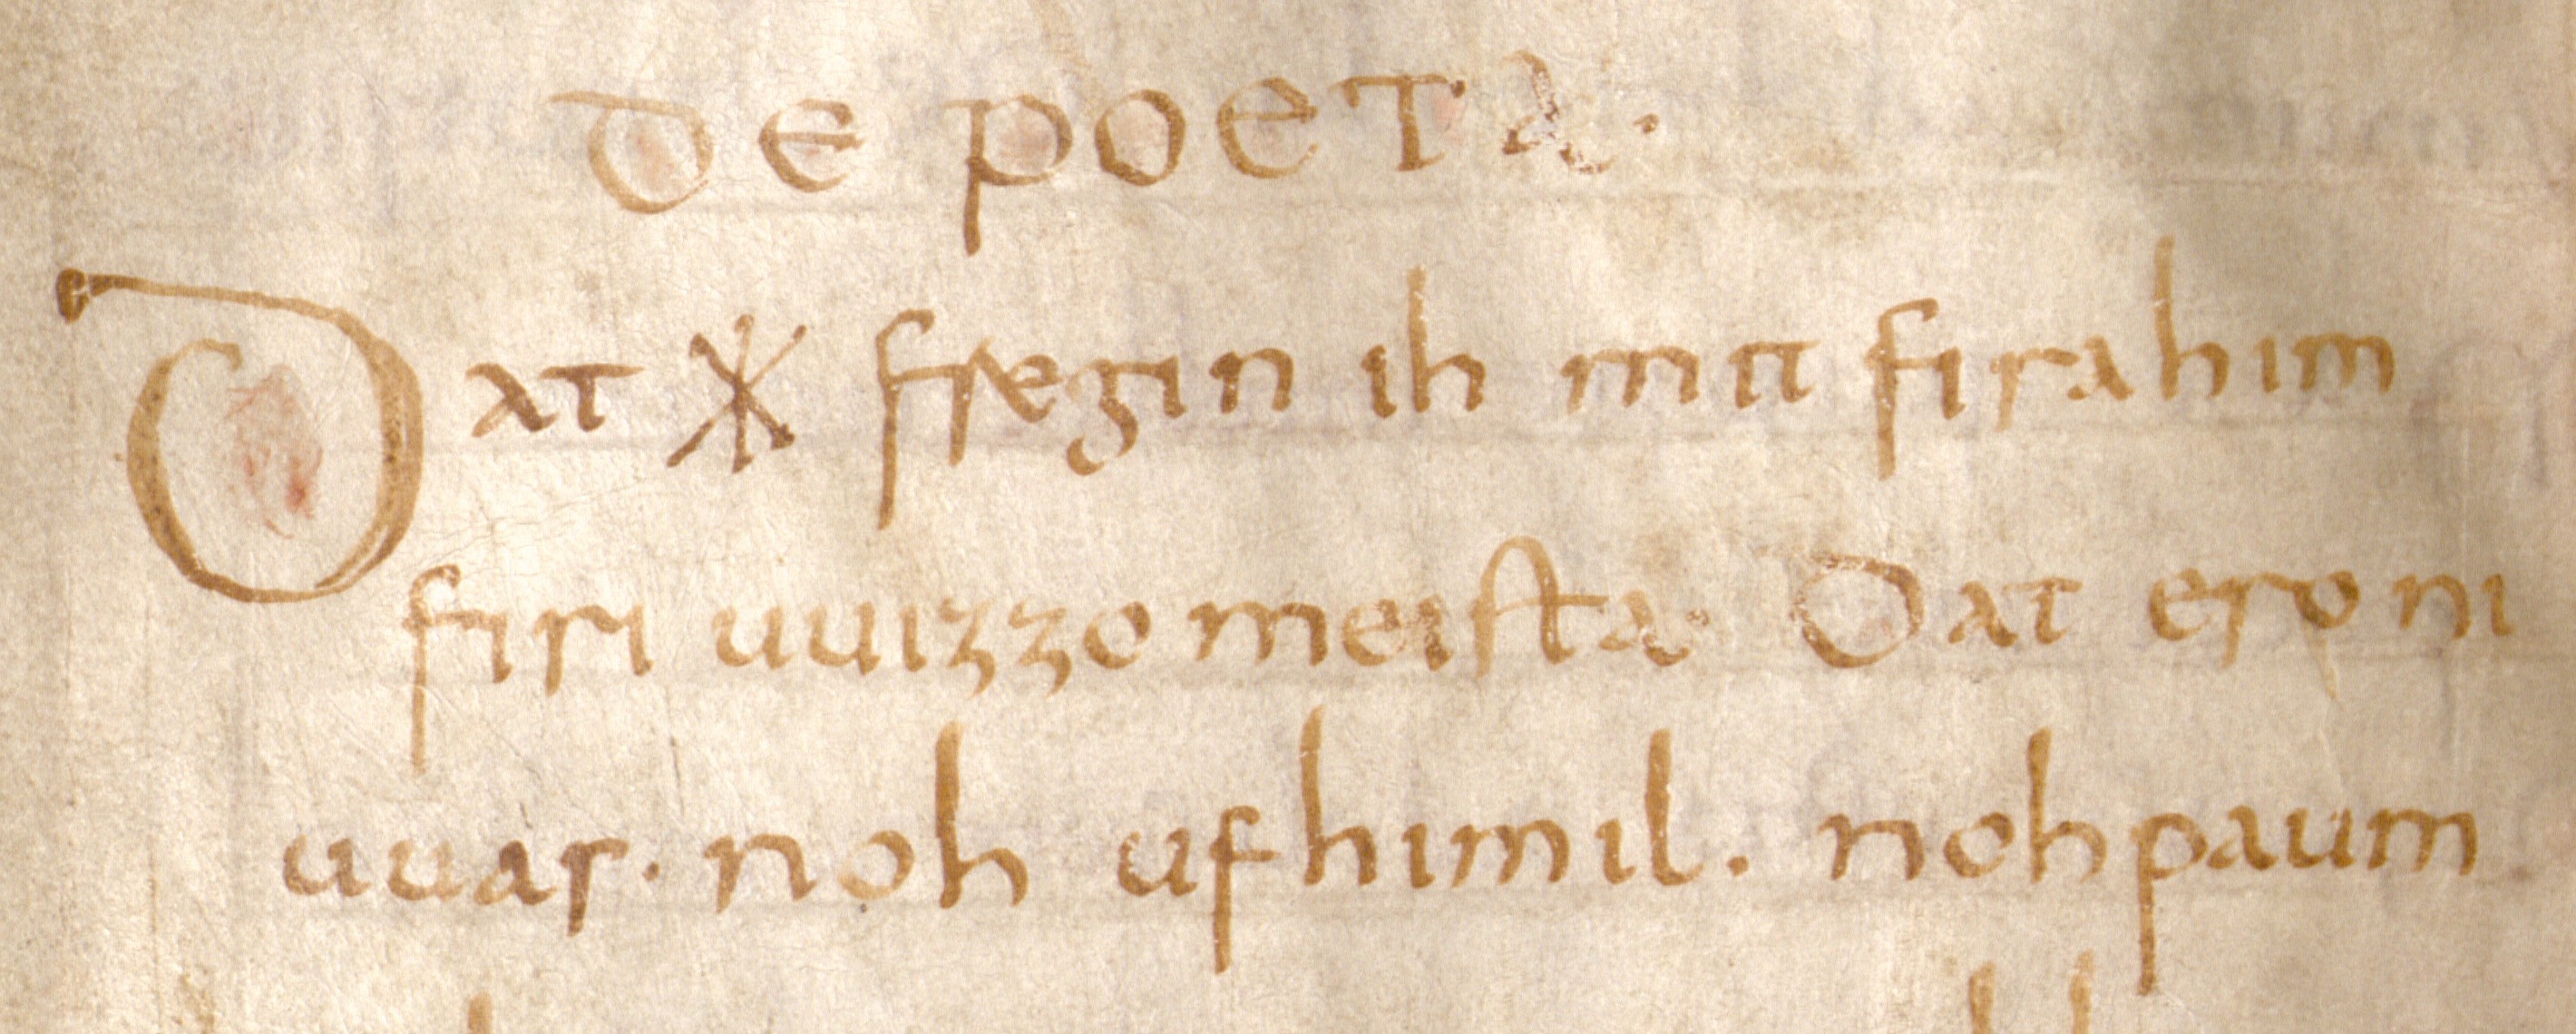 DE POETA·
Dat ᚷ fregin ih mit firahim
firi uuizzo meista· Dat ero ni
uuas· noh ufhimil· noh paum